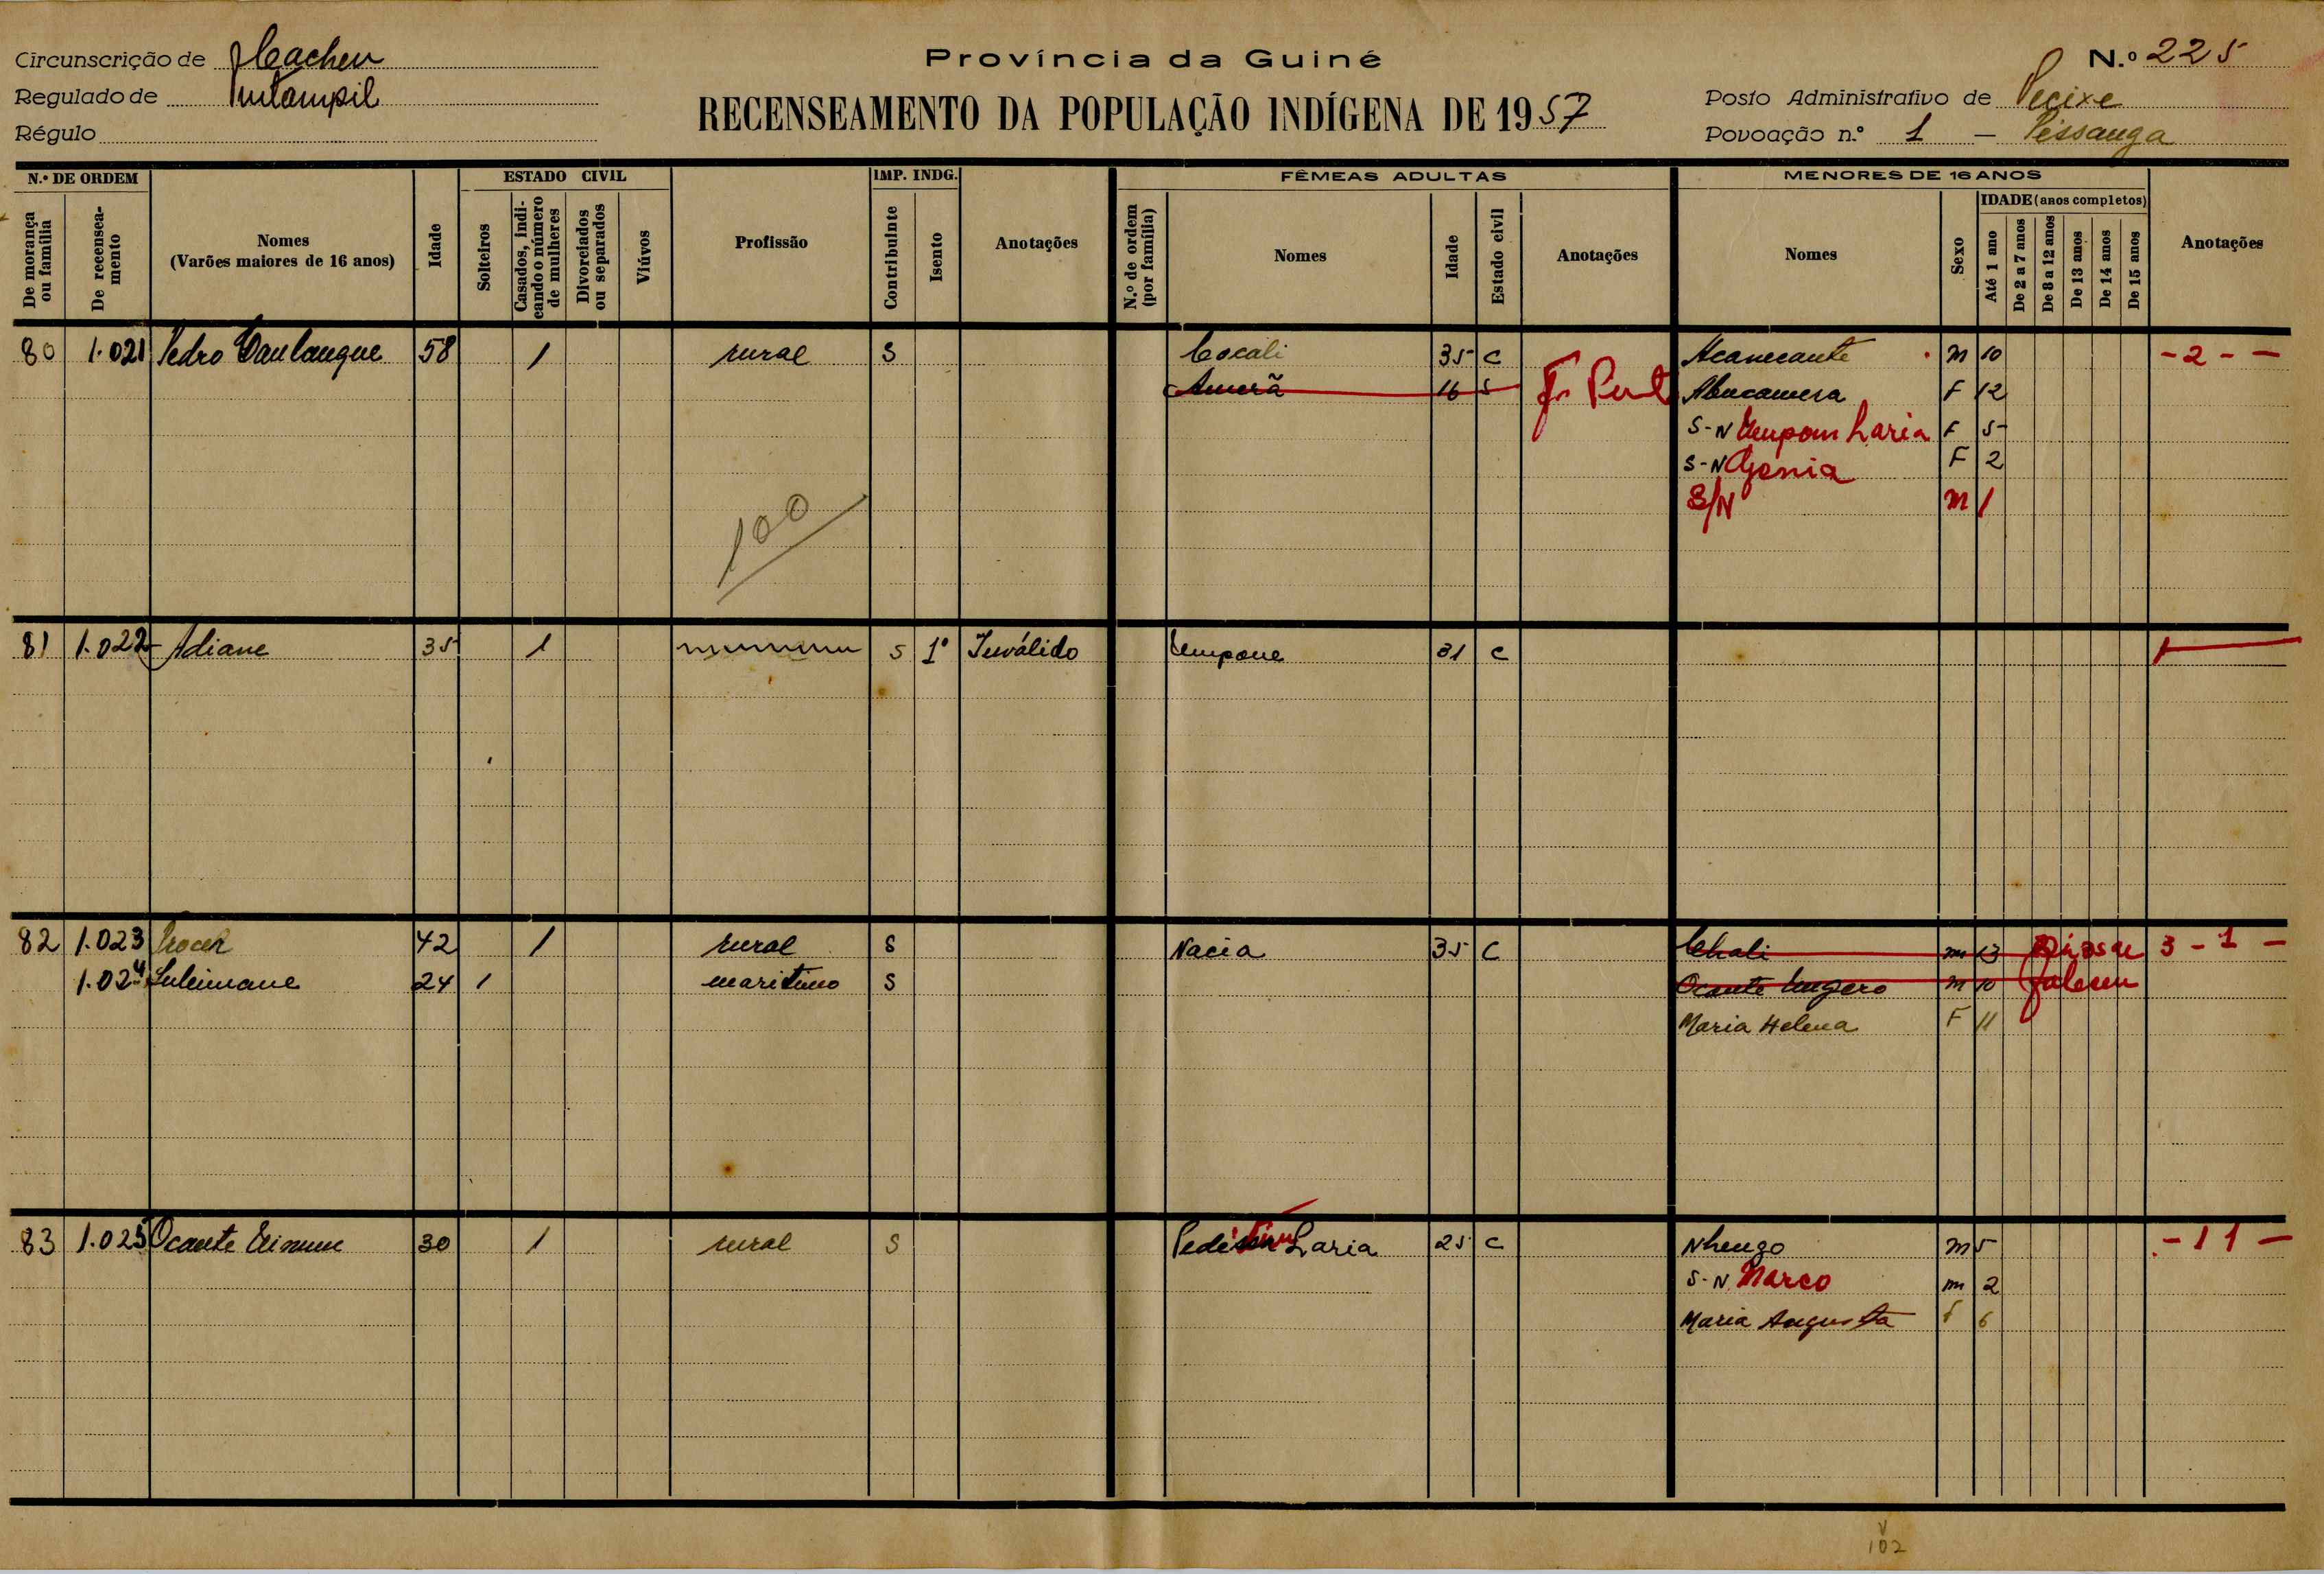 Circunscrição de Cacheu
Regulado de Intampil
Régulo
Província da Guiné
RECENSEAMENTO DA POPULAÇÃO INDÍGENA DE 1957
N.º 225
Posto Administrativo de Pecixe
Povoação n.º 1 - Pissanga
N.º DE ORDEM
De morança ou família
De recenseamento
Nomes
(Varões maiores de 16 anos)
Idade
ESTADO CIVIL
Solteiros
Casados, indicando o número de mulheres
Divorciados ou separados
Viúvos
Profissão
IMP. INDG.
Contribuinte
Isento
Anotações
FÊMEAS ADULTAS
N.º de ordem (por família)
Nomes
Idade
Estado civil
Anotações
MENORES DE 16 ANOS
Nomes
Sexo
IDADE (anos completos)
Até 1 ano
De 2 a 7 anos
De 8 a 12 anos
De 13 anos
De 14 anos
De 15 anos
Anotações
80 1.021 Pedro 58 1 rural S Cocali 35 C Acanecante M 10 - 2 - -
16 S F 12
S-N Laria F 5
S-N F 2
S/N M 1
100
81 1.022 Adiane 35 1 S 1º Inválido Umpone 31 C
82 1.023 42 1 rural S Nacia 35 C Chali m 13 3 - 1 -
1.024 Suleimane 24 1 maritimo S Ocante M 10
Maria Helena F 11
83 1.025 Ocante 30 1 rural S Laria 25 C Nhengo M 5 - 1 1 -
S-N Marco m 2
Maria Augusta F 6
102